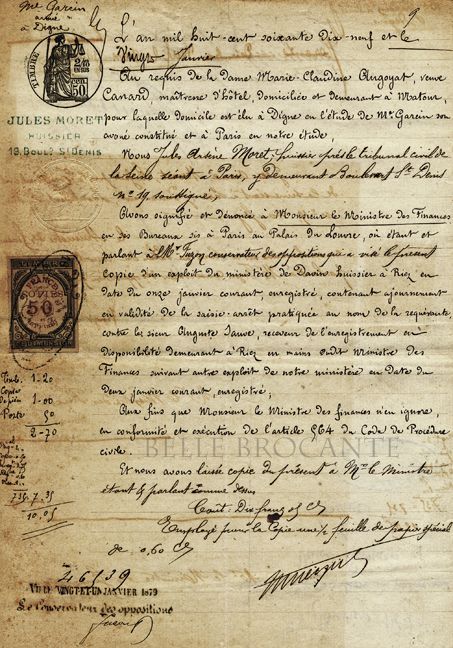 Me Garcin
avoué
à Digne
9
TIMBRE
50c
JULES MORET
HUISSIER
19, Boulд St DENIS
L'an mil huit-cent soixante Dix-neuf et le
Vingt Janvier
Au requis de la dame Marie-Claudine Augoyat, veuve
Canard, maîtresse d'hôtel, domiciliée et demeurant à Matour,
pour laquelle domicile est élu à Digne en l'étude de Me Garcin son
avoué constitué et à Paris en notre étude,
Nous Jules Arsène Moret, huissier près le tribunal civil de
la Seine séant à Paris, y demeurant Boulevart St Denis
No 19, soussigné,
Avons signifié et dénoncé à Monsieur le Ministre des Finances
en ses Bureaux sis à Paris au Palais du Louvre, où étant et
parlant à Mr conservateur des oppositions qui a visé le présent
Copie d'un exploit du ministère de Davin huissier à Riez en
date du onze janvier courant, enregistré, contenant ajournement
en validité de la saisie-arrêt pratiquée au nom de la requérante,
contre le sieur Auguste Jauve, receveur de l'enregistrement en
disponibilité demeurant à Riez en mains dudit Ministre des
Finances suivant autre exploit de notre ministère en date du
Deux janvier courant, enregistré;
Aux fins que Monsieur le Ministre des finances n'en ignore,
en conformité et exécution de l'article 564 du Code de Procédure
civile.
BELLE BROCANTE
Et nous avons laissé copie du présent à Mr le Ministre
étant et parlant comme dessus
Coût: Dix francs 05 Cs
Employé pour la Copie une 1/2 feuille de papier spécial
de 0,60 Cs
50c
Timb. 1-20
Copies
de pièce 1-00
Poste 50
2-70
7.35
10.05
46539
VISÉ VINGT-ET-UN JANVIER 1879
Le Conservateur des oppositions